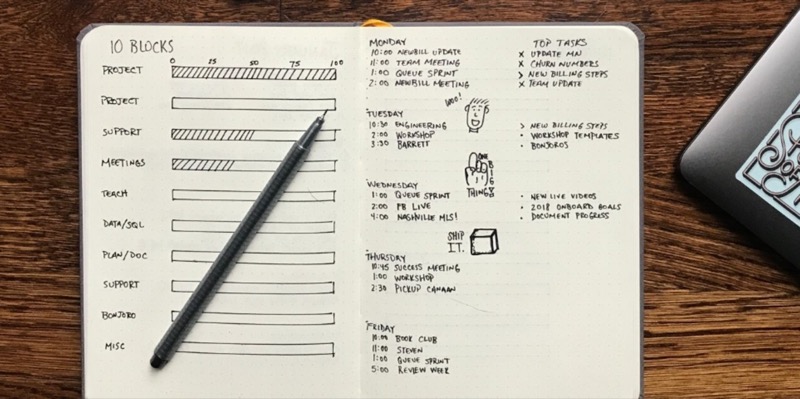 10 BLOCKS
0 25 50 75 100
PROJECT
PROJECT
SUPPORT
MEETINGS
TEACH
DATA/SQL
PLAN/DOC
SUPPORT
BONJORO
MISC
MONDAY
10:00 NEWBILL UPDATE
11:00 TEAM MEETING
1:00 QUEUE SPRINT
2:00 NEWBILL MEETING
TOP TASKS
X UPDATE MN
X CHURN NUMBERS
> NEW BILLING STEPS
X TEAM UPDATE
WOO!
TUESDAY
10:30 ENGINEERING
2:00 WORKSHOP
3:30 BARRETT
> NEW BILLING STEPS
• WORKSHOP TEMPLATES
• BONJOROS
ONE
BIG
THING
WEDNESDAY
1:00 QUEUE SPRINT
2:00 PB LIVE
4:00 NASHVILLE MLS!
• NEW LIVE VIDEOS
• 2018 ONBOARD GOALS
• DOCUMENT PROGRESS
SHIP
IT.
THURSDAY
10:45 SUCCESS MEETING
1:00 WORKSHOP
2:30 PICKUP CANAAN
FRIDAY
10:00 BOOK CLUB
11:00 STEVEN
1:00 QUEUE SPRINT
5:00 REVIEW WEEK